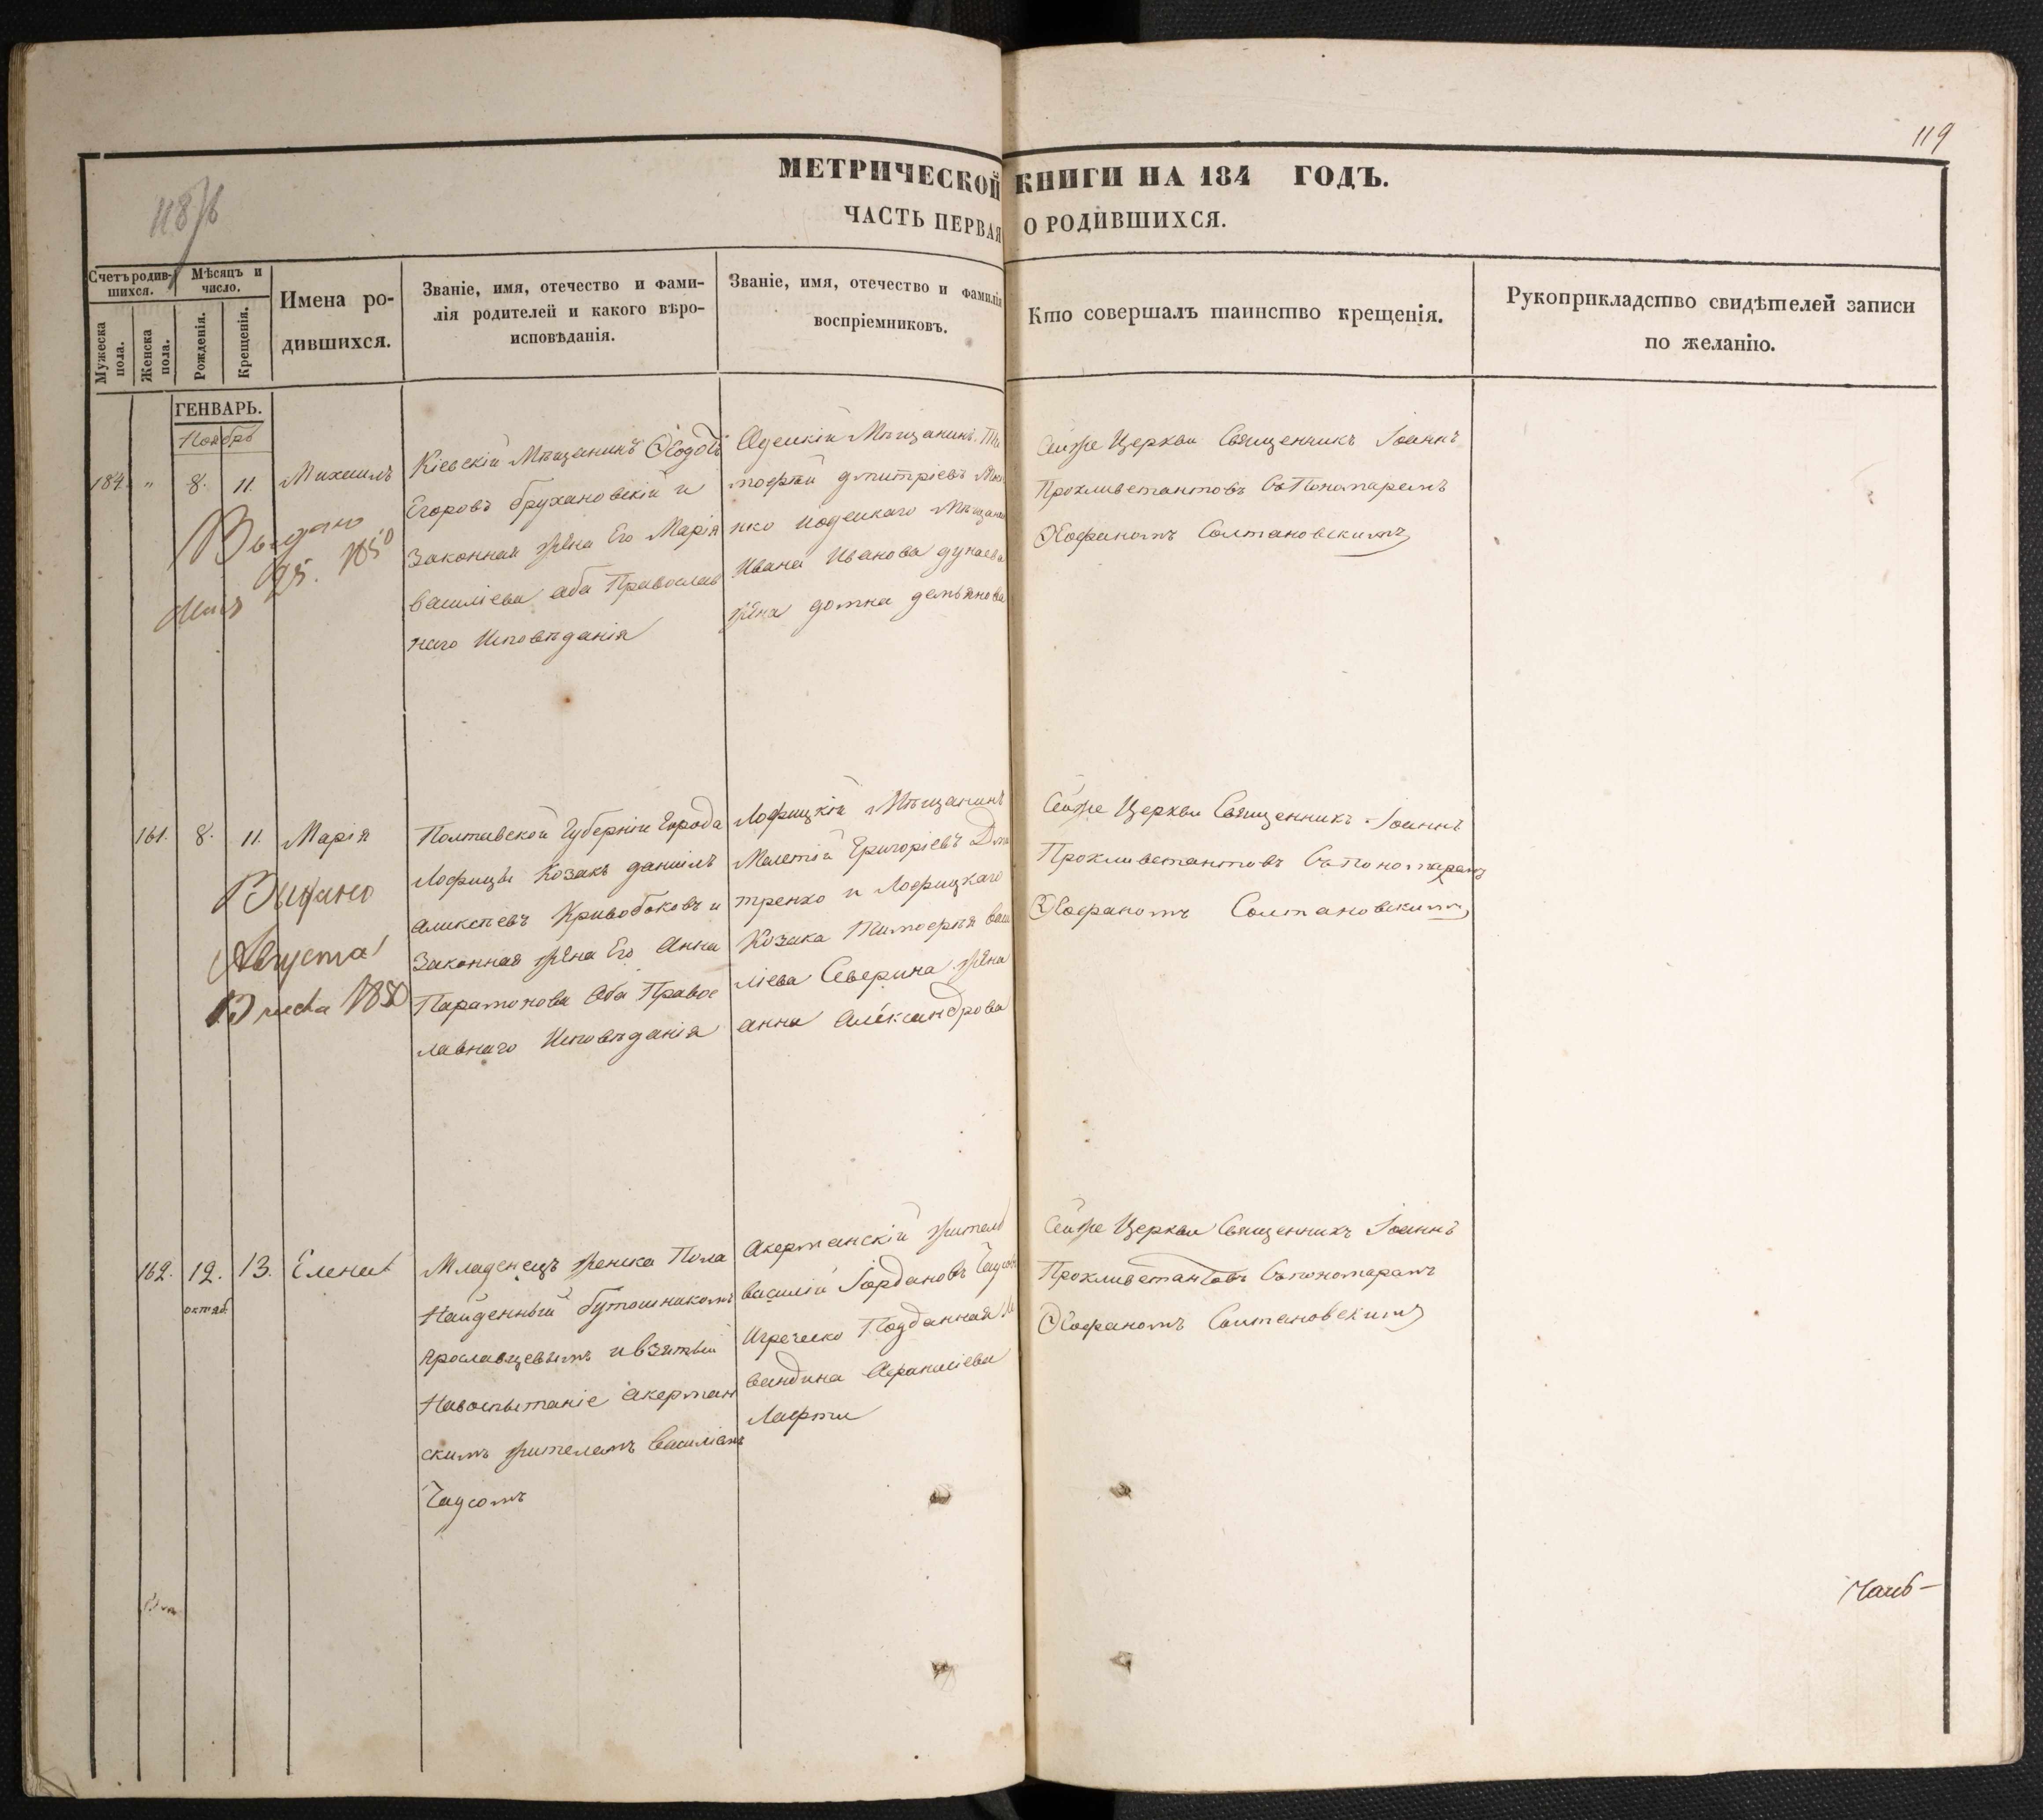 119
118/б
МЕТРИЧЕСКОЙ КНИГИ НА 184 ГОДЪ.
ЧАСТЬ ПЕРВАЯ О РОДИВШИХСЯ.
Счетъ родившихся.
Мѣсяцъ и число.
Мужеска пола.
Женска пола.
Рожденія.
Крещенія.
Имена родившихся.
Званіе, имя, отечество и фамилія родителей и какого вѣроисповѣданія.
Званіе, имя, отечество и фамилія воспріемниковъ.
Кто совершалъ таинство крещенія.
Рукоприкладство свидѣтелей записи по желанію.
ГЕНВАРЬ.
Ноябрь
184. " 8. 11. Михаилъ
Кіевскій Мѣщанинъ Ѳеодотъ
Егоровъ Брухановскій и
Законная жена Его Марія
Василіева оба Православ
наго Исповѣданія
Одескій Мѣщанинъ Ти
мофей Дмитріевъ
нко иодескаго Мѣщан
Ивана Иванова Дунаева
жена Домна Демьянова
Сейже Церкви Священникъ Іоаннъ
Прокливетантовъ Съ Пономаремъ
Ѳеофаномъ Солтановскимъ
Выдано
25. 1850
161. 8. 11. Марія
Полтавской Губерніи Города
Лофицы Козакъ Даніилъ
Аликсѣевъ Кривобоковъ и
Законная жена Его Анна
Парамонова Оба Правос
лавнаго Исповѣданія
Лофицкій Мѣщанинъ
Мелетій Григоріевъ Дми
тренко и Лофицкаго
Козака Тимофея Васи
ліева Северина жена
Анна Александрова
Сейже Церкви Священникъ Іоаннъ
Прокливетантовъ Съ Пономаремъ
Ѳеофаномъ Солтановскимъ
Выдано
Августа
13 числа 1850
162. 12. 13. Елена
октяб.
Младенецъ женска Пола
Найденный бутошникомъ
Ярославцевымъ ивзятый
Навоспытаніе Акерман
скимъ жителемъ Василіемъ
Чаусомъ
Акерманскій житель
Василій Іордановъ Чаусъ
Игреческо Подданная
вандина Афанасіева
Лафти
Сейже Церкви Священникъ Іоаннъ
Прокливетантовъ Съпономаремъ
Ѳеофаномъ Солтановскимъ